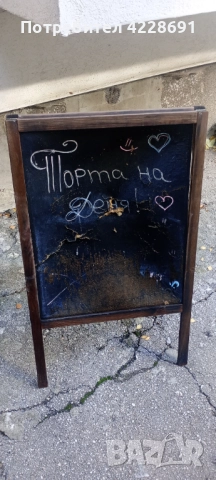 Потребител 4228691
Торта на
Деня!
BAZAR